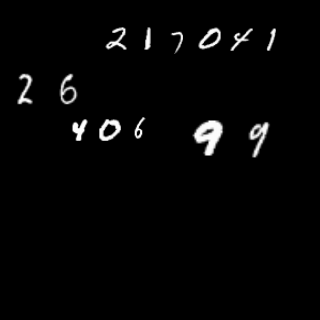 217041
26
406 99